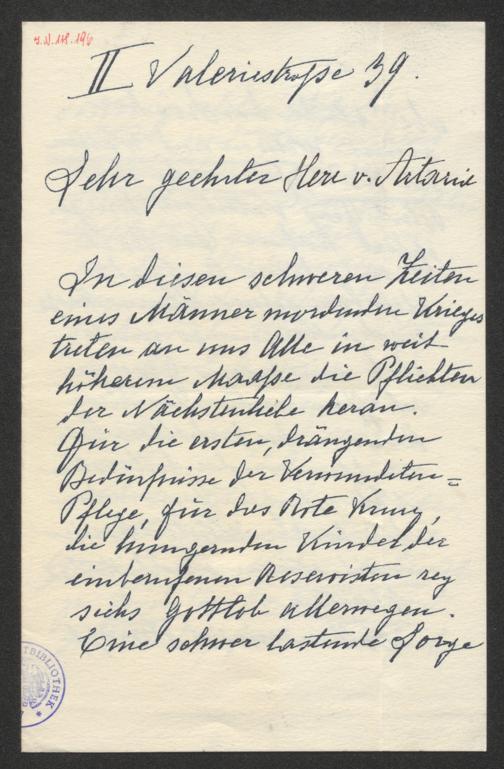 J.N. 118.196
II Valeriestraße 39.
Sehr geehrter Herr v. Artaria
In diesen schweren Zeiten
eines Männer mordenden Krieges
treten an uns Alle in weit
höherem Maaße die Pflichten
der Nächstenliebe heran.
Für die ersten, drängenden
Bedürfnisse der Verwundeten=
Pflege, für das Rote Kreuz,
die hungernden Kinder der
einberufenen Reservisten reg
sichs Gottlob allerwegen.
Eine schwer lastende Sorge
TBIBLIOTHEK